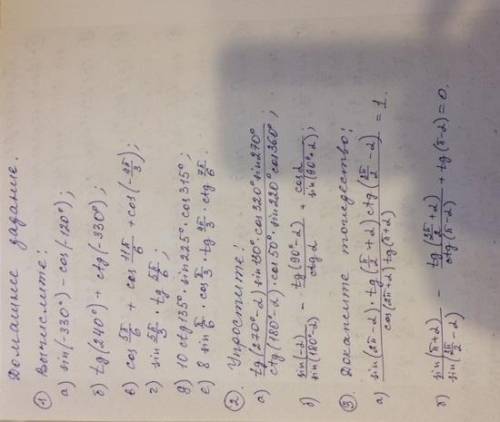 Домашнее задание.
① Вычислите:
а) sin(-330°) - cos(-120°);
б) tg(240°) + ctg(-330°);
в) cos 5π/6 + cos 11π/6 + cos(-4π/3);
г) sin 5π/3 · tg 5π/6;
д) 10 ctg 135° · sin 225° · cos 315°;
е) 8 sin π/6 · cos π/3 · tg 4π/3 · ctg 7π/6.
② Упростите:
а) tg(270°-α) sin 130° · cos 320° sin 270° / ctg(180°-α) · cos 50° · sin 220° cos 360°;
б) sin(-α) / sin(180°-α) - tg(90°-α) / ctg α + cos α / sin(90°+α);
③ Докажите тождество:
а) sin(2π-α) · tg(π/2+α) ctg(3π/2-α) / cos(2π+α) tg(π+α) = 1.
б) sin(π+α) / sin(3π/2-α) - tg(3π/2+α) / ctg(π-α) + tg(π-α) = 0.